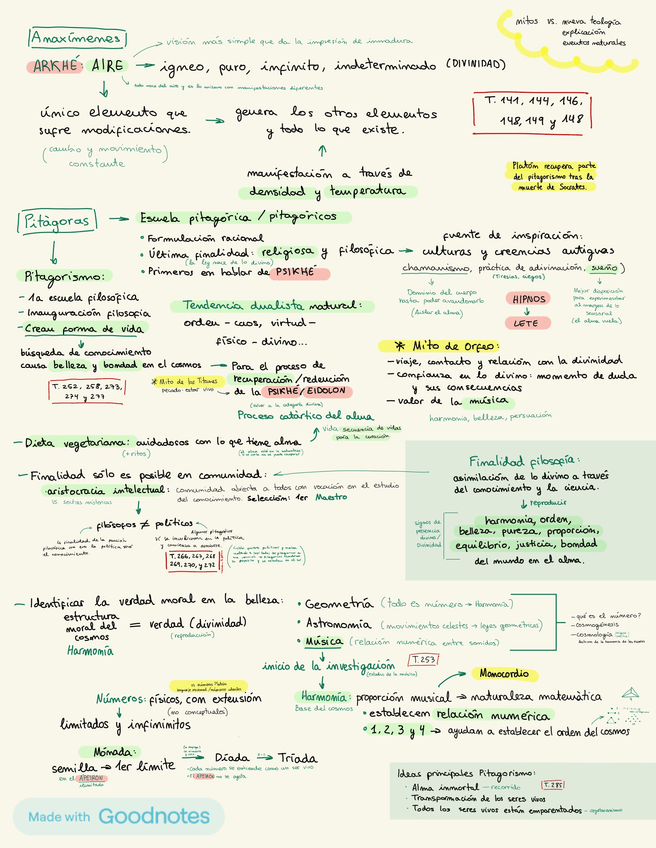 Anaxímenes
visión más simple que da la impresión de inmadura
mitos vs. nueva teología
explicación
eventos naturales
ARKHÉ: AIRE → igneo, puro, infinito, indeterminado (DIVINIDAD)
todo nace del aire y es lo mismo con manifestaciones diferentes
único elemento que
sufre modificaciones.
(cambio y movimiento)
constante
→ genera los otros elementos
y todo lo que existe.
manifestación a través de
densidad y temperatura
T. 141, 144, 146,
148, 149 y 148
Platón recupera parte
del pitagorismo tras la
muerte de Socrates.
Pitágoras → Escuela pitagórica / pitagóricos
• Formulación racional
• Última finalidad: religiosa y filosófica →
• Primeros en hablar de PSIKHÉ
fuente de inspiración:
culturas y creencias antiguas
chamanismo, práctica de adivinación, sueño)
(Tiresias, ciegos)
Dominio del cuerpo
hasta poder abandonarlo
(dudar el alma)
HIPNOS
LETE
Mejor disposición
para experimentar
al margen de lo
sensorial
(el alma vuela)
Pitagorismo:
- 1a escuela filosófica
- Inauguración filosofía
- Crean forma de vida
búsqueda de conocimiento
causa belleza y bondad en el cosmos
T. 252, 258, 273,
274 y 277
Tendencia dualista natural:
orden - caos, virtud -
físico - divino...
→ Para el proceso de
recuperación / redención
de la PSIKHÉ / EIDOLON
(volver a la categoría divina)
* Mito de los Titanes
Proceso catártico del alma
vida: secuencia de vidas
para la curación
* Mito de Orfeo:
- viaje, contacto y relación con la divinidad
- confianza en lo divino: momento de duda
y sus consecuencias
- valor de la música
harmonía, belleza, persuación
- Dieta vegetariana: cuidadosos con lo que tiene alma
(+ ritos)
- Finalidad sólo es posible en comunidad:
aristocracia intelectual: comunidad abierta a todos con vocación en el estudio
del conocimiento. Selección: 1er Maestro
filósofos ≠ políticos
Algunos pitagóricos
la finalidad de la función
filosófica no era la política sino
el conocimiento.
T. 266, 267, 268
269, 270, y 272
Finalidad filosofía:
asimilación de lo divino a través
del conocimiento y la ciencia.
↓ reproducir
signos de
presencia
divina /
Divinidad
harmonía, orden,
belleza, pureza, proporción,
equilibrio, justicia, bondad
del mundo en el alma.
- Identificar la verdad moral en la belleza:
estructura
moral del
cosmos
Harmonía
= verdad (divinidad)
(reproducción)
• Geometría (todo es número → Harmonía)
• Astronomía (movimientos celestes → leyes geométricas)
• Música (relación numérica entre sonidos)
- qué es el número?
- cosmogénesis
- cosmología
inicio de la investigación
T. 253
Monocordio
Números: físicos, con extensión
(no conceptuales)
limitados y infinimitos
Harmonía: proporción musical → naturaleza matemática
Base del cosmos
• establecem relación numérica
• 1, 2, 3 y 4 → ayudan a establecer el orden del cosmos
Mómada:
semilla → 1er límite → Díada → Tríada
en el APEIRON
ilimitado
Ideas principales Pitagorismo:
· Alma inmortal - recorrido T. 285
· Transformación de los seres vivos
· Todos los seres vivos están emparentados - vegetarianismo
Made with Goodnotes